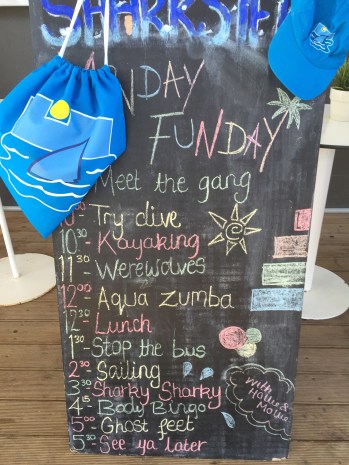 NDAY
FUNDAY
Meet the gang
Try dive
10 30 - Kayaking
11 30 - Werewolves
12 00 - Aqua Zumba
Lunch
1 30 - Stop the bus
2 30 - Sailing
3 30 - Sharky Sharky
4 15 - Body Bingo
5 00 - Ghost feet
5 30 - See ya later
With
&